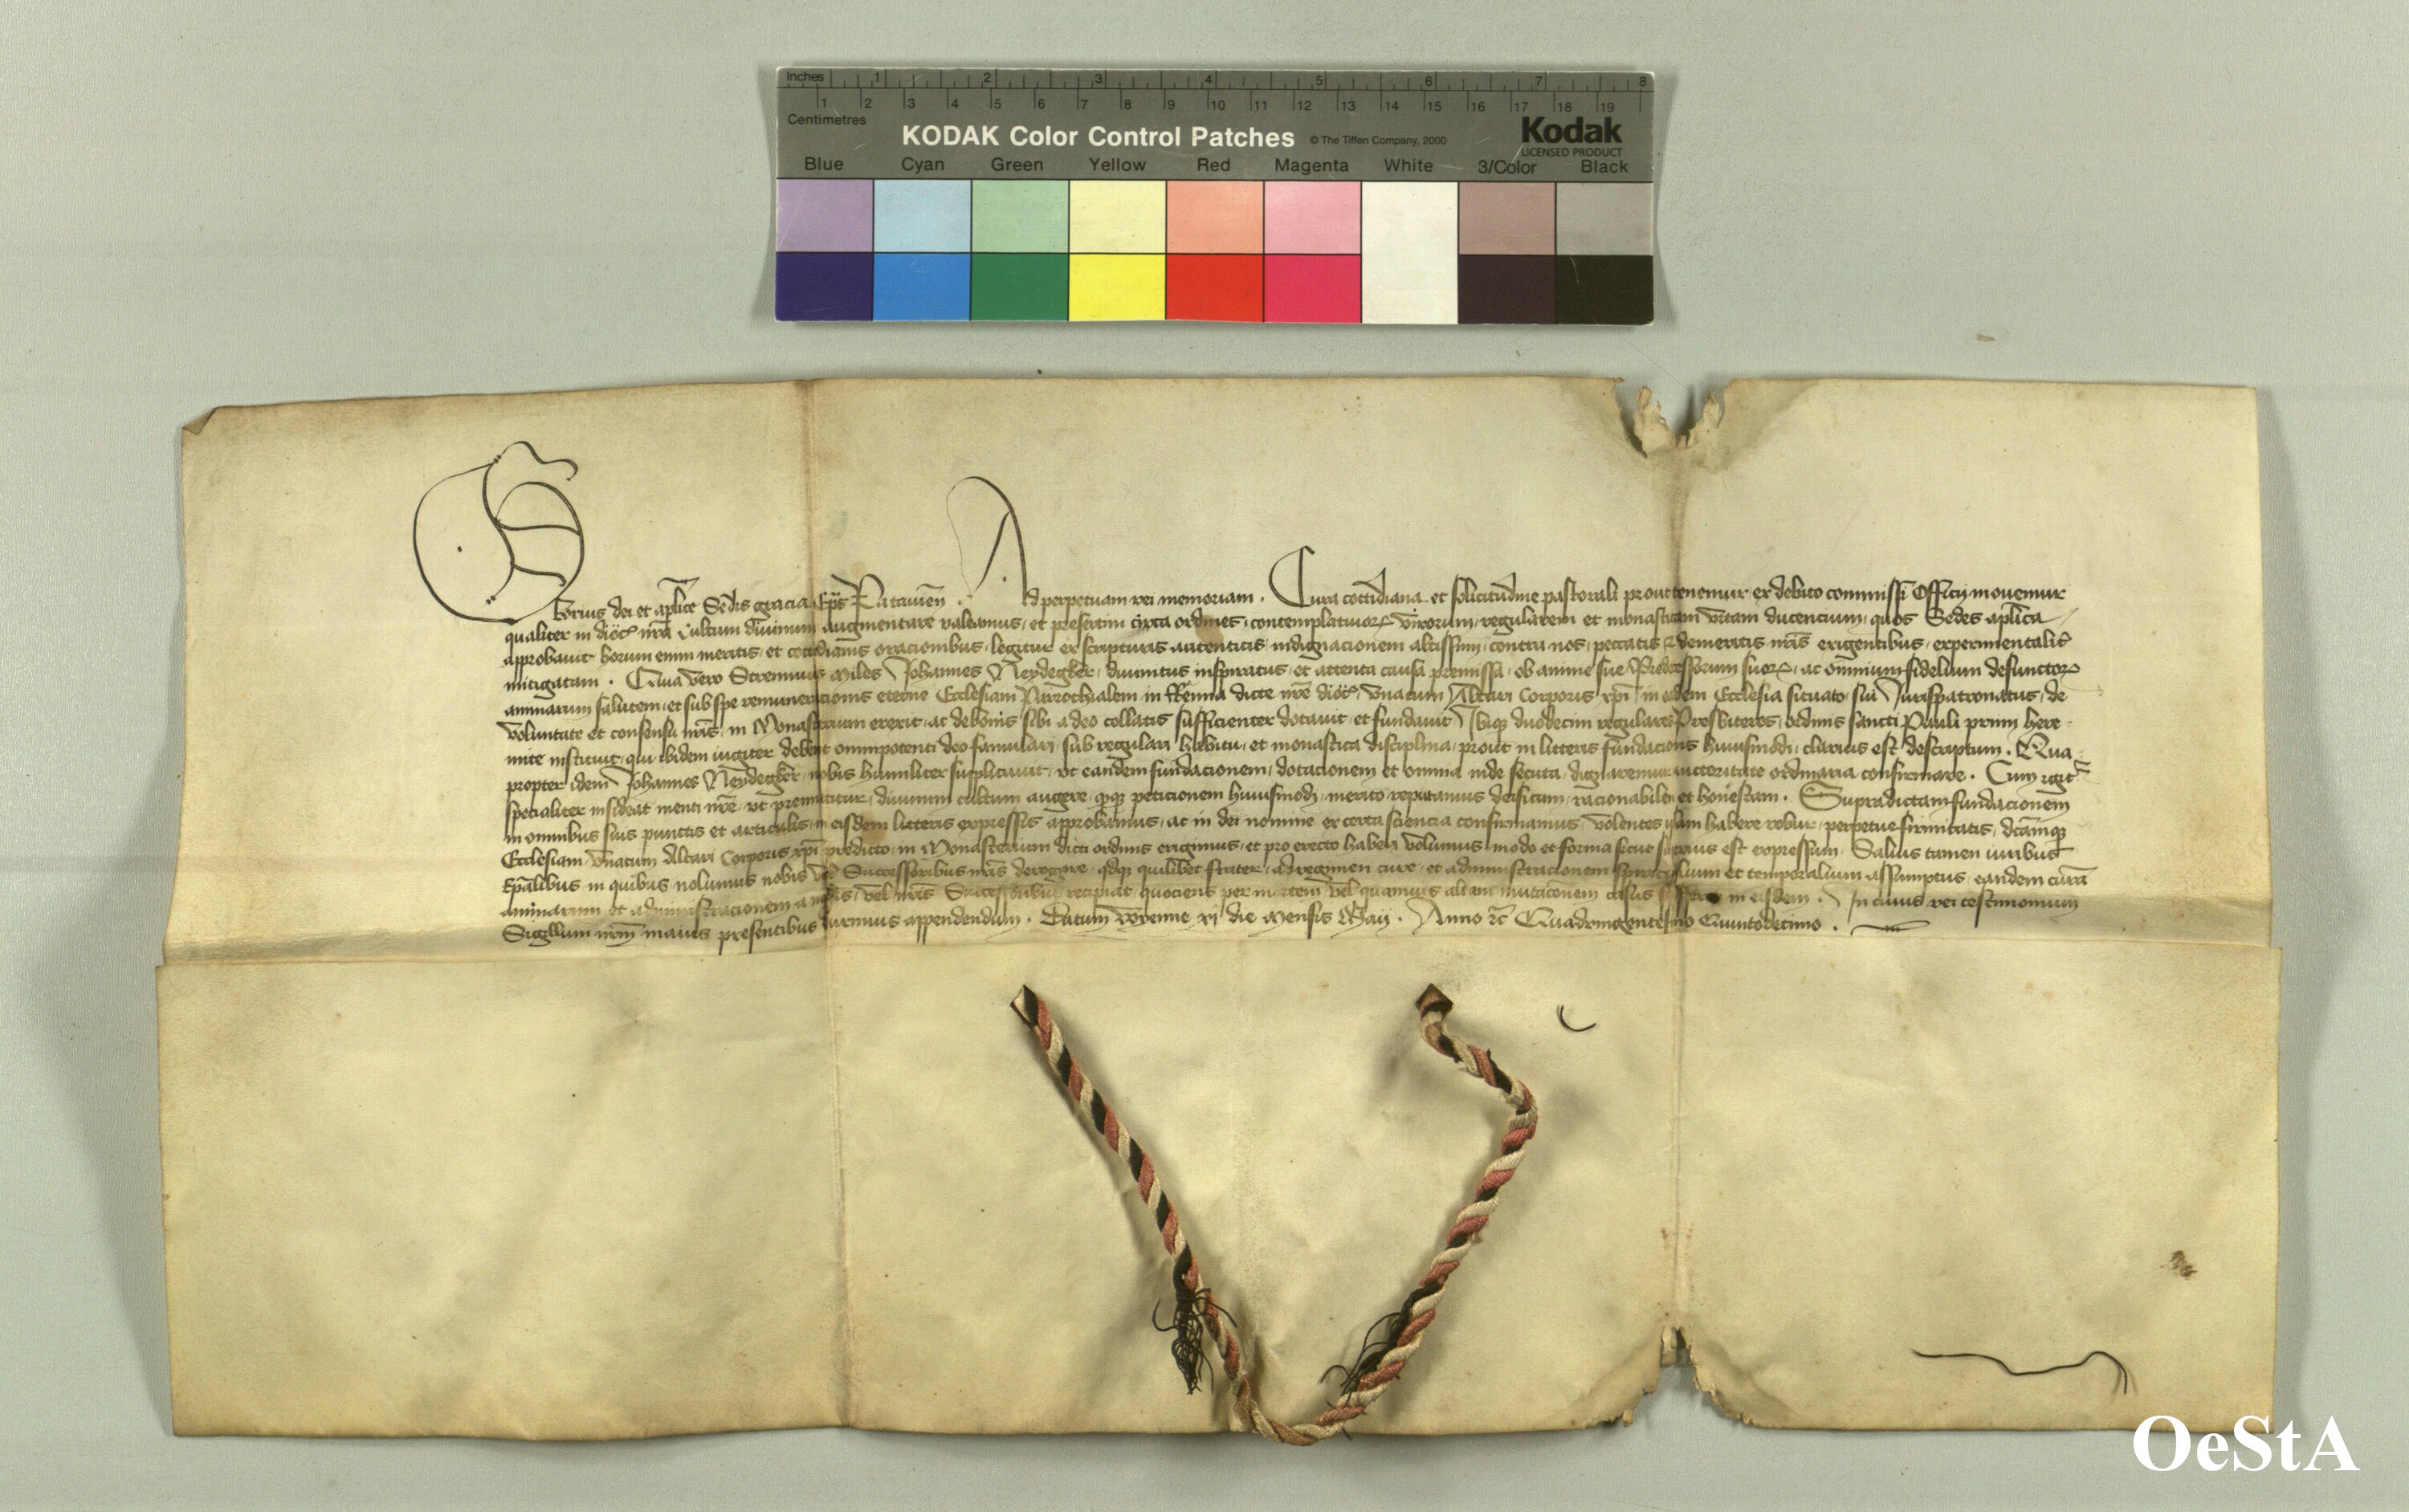 Inches 1 2 3 4 5 6 7 8
1 2 3 4 5 6 7 8 9 10 11 12 13 14 15 16 17 18 19
Centimetres
KODAK Color Control Patches © The Tiffen Company, 2000 Kodak
LICENSED PRODUCT
Blue Cyan Green Yellow Red Magenta White 3/Color Black
Georius dei et aplice Sedis gracia Eps Patavien . Ad perpetuam rei memoriam . Cura cottidiana et solicitudine pastorali prout tenemur ex debito commissi Officij mouemur
qualiter in dioc nra Cultum diuinum augmentare valeamus, et presertim circa ordines, contemplatiuorum virorum, regularem et monasticam vitam ducencium, quos Sedes aplica
approbauit horum enim meritis, et cottidianis oracionibus, legitur ex scripturis autenticis, indignacionem altissimi, contra nos, peccatis et demeritis nris exigentibus, experimentalit
mitigatam . Quia vero Strennuus Miles Johannes Neydegker, diuinitus inspiratus, et attenta causa premissa, ob anime sue Predecessorum suorum, ac omnium fidelium defunctorum
animarum salutem, et sub spe remuneracionis eterne Ecclesiam Parrochialem in Renna dicte nre dioc, vnacum Altari Corporis xpi, in eadem Ecclesia situato, sui Jurispatronatus, de
voluntate et consensu nris, in Monasterium erexit, ac de bonis sibi a deo collatis sufficienter dotauit, et fundauit, Ibique duodecim regulares Presbiteros, ordinis sancti Pauli primi here-
mite instituit, qui ibidem iugiter debent omnipotenti deo famulari, sub regulari habitu, et monastica disciplina, prout in litteris fundacionis huiusmodi, clarius est descriptum . Qua-
propter idem Johannes Neydegker, nobis humiliter supplicauit, vt eandem fundacionem, dotacionem et omnia inde secuta, dignaremur auctoritate ordinaria confirmare . Cum igit
specialiter insideat menti nre, vt premittitur, diuinum cultum augere, peticionem huiusmodi, merito reputamus deificam, racionabilem et honestam . Supradictam fundacionem
in omnibus suis punctis et articulis, in eisdem litteris expressis approbamus, ac in dei nomine ex certa sciencia confirmamus, volentes ipsam habere robur, perpetue firmitatis, dictamque
Ecclesiam vnacum Altari Corporis xpi predicto, in Monasterium dicti ordinis erigimus, et pro erecto haberi volumus, modo et forma sicut superius est expressum . Saluis tamen iuribus
Epalibus in quibus nolumus nobis vel Successoribus nris derogare, quilibet frater, ad regimen cure, et administracionem spiritualium et temporalium assumptus, eandem cura
animarum et administracionem a nobis, vel nris Successoribus recipiat, quociens per mortem vel quamuis aliam mutacionem casus in eisdem . In cuius rei testimonium
Sigillum nrm maius presentibus duximus appendendum . Datum Wienne xj die Mensis Maij . Anno etc Quadringentesimo Quintodecimo .
OeStA